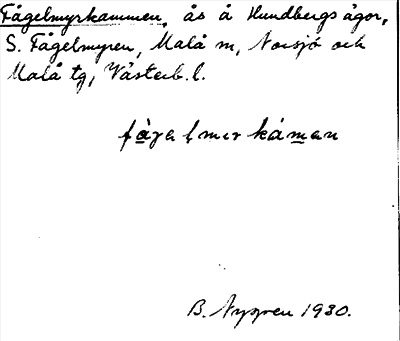 Fågelmyrkammen, ås å Hundbergs ägor,
S. Fågelmyren, Malå sn, Norsjö och
Malå tg, Västerb. l.
fàgəlmɩrkámən
B. Nygren 1930.